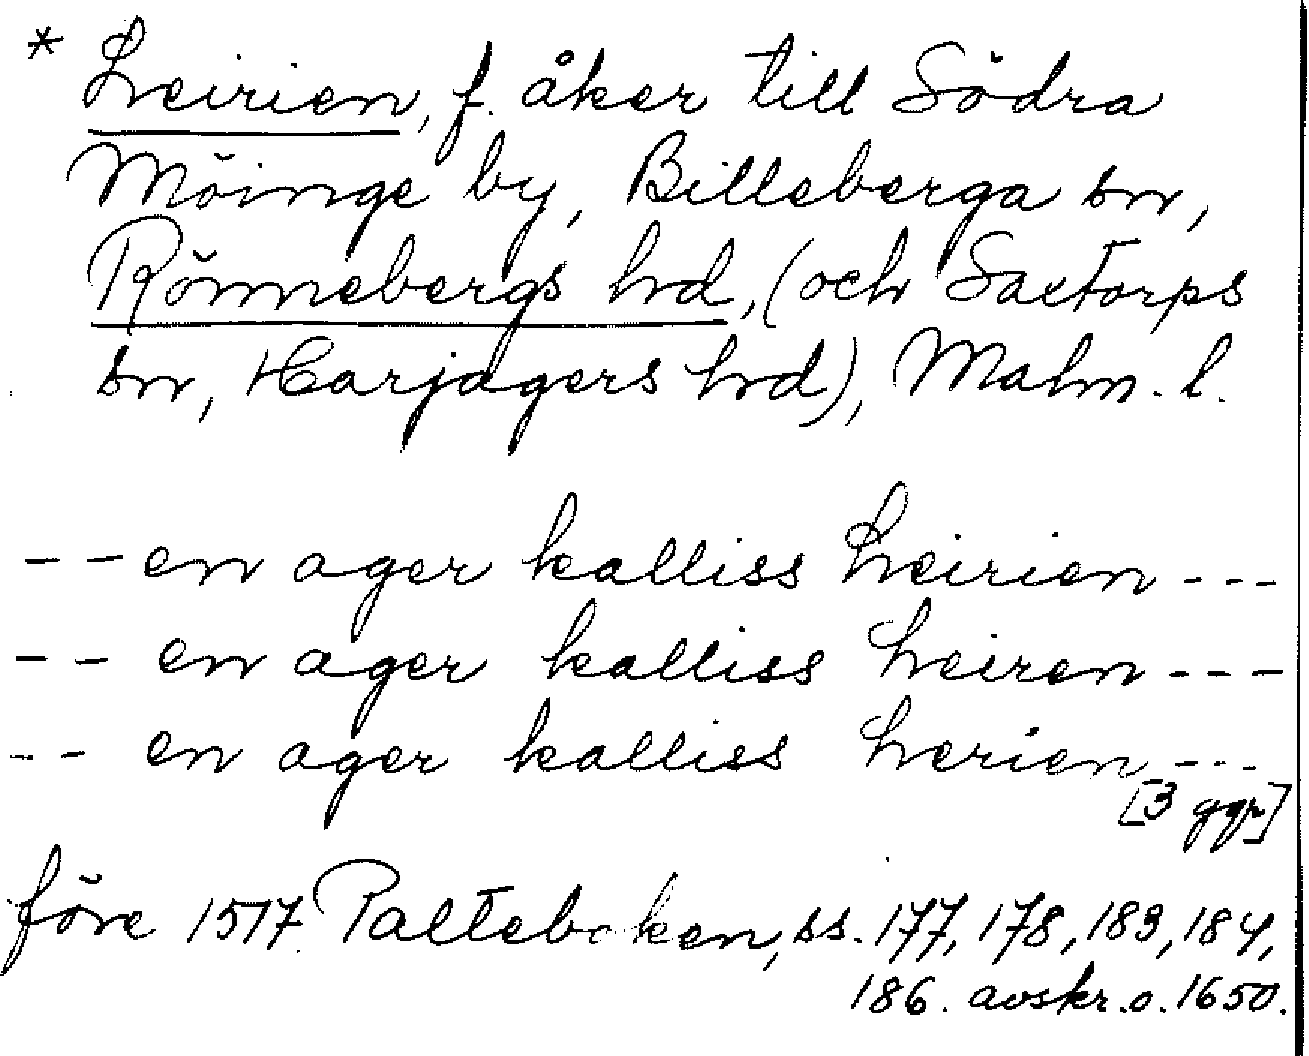 * Leirien, f. åker till Södra
Möinge by, Billeberga sn,
Rönnebergs hd, (och Saxtorps
sn, Harjagers hd), Malm. l.
-- en ager kalliss Leirien ---
-- en ager kalliss Leiren ---
-- en ager kalliss Lerien ---
[3 ggr]
före 1517. Palteboken, ss. 177, 178, 183, 184,
186. avskr. o. 1650.